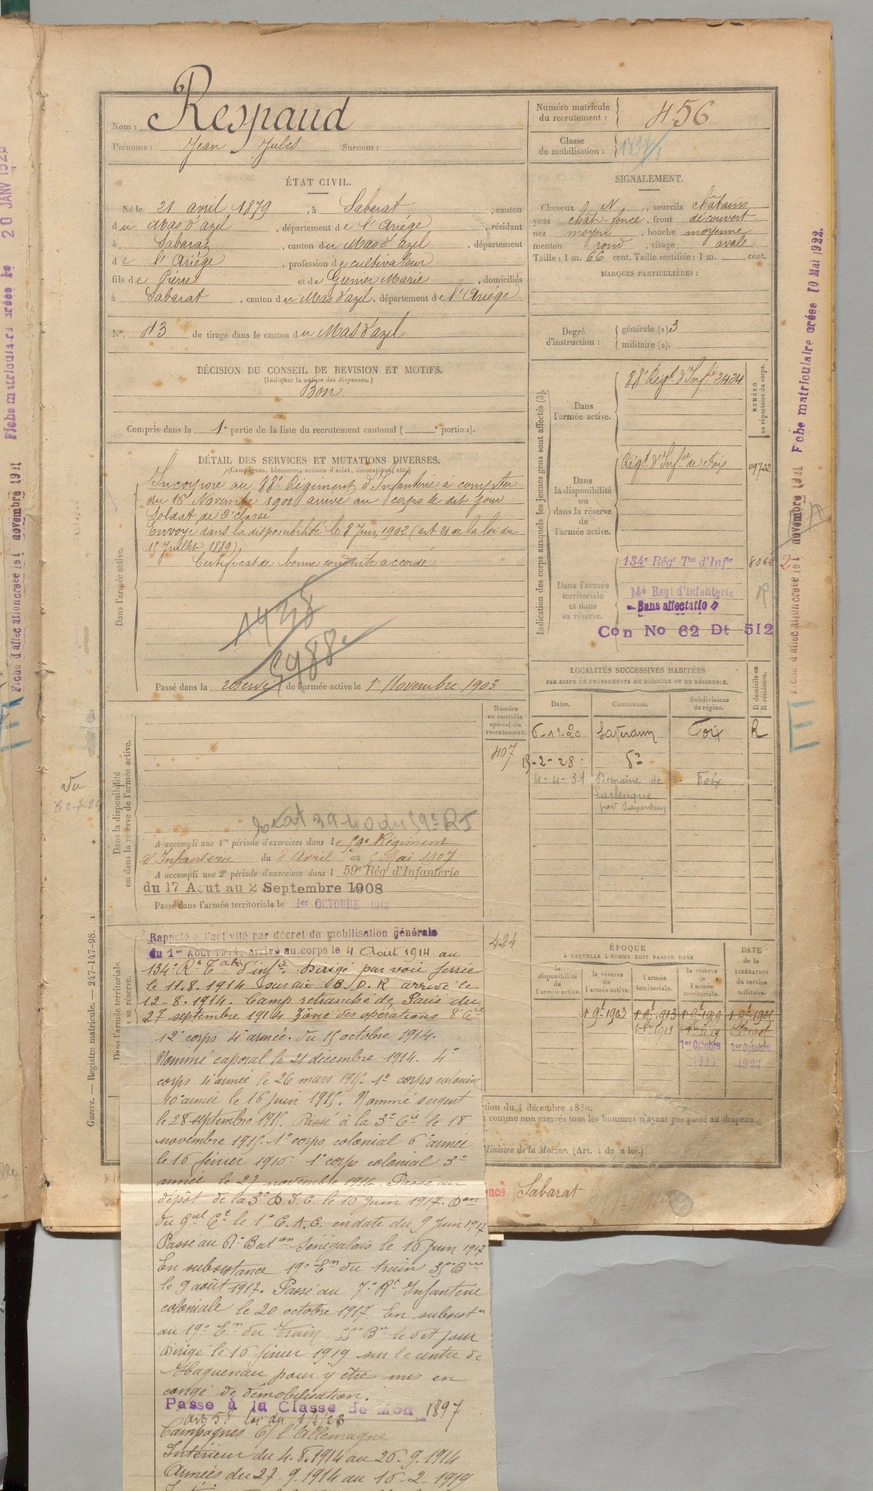 Nom : Respaud
Prénoms : Jean Jules Surnom :
ÉTAT CIVIL.
Né le 21 avril 1879, à Sabarat, canton
du Mas d'azil, département de l'Ariège, résidant
à Sabarat, canton du Mas d'azil, département
de l'Ariège, profession de cultivateur
fils de Pierre et de Grenier Marie, domiciliés
à Sabarat, canton du Mas d'azil, département de l'Ariège
N° 43 de tirage dans le canton du Mas d'azil
DÉCISION DU CONSEIL DE REVISION ET MOTIFS.
(Indiquer la nature des dispenses.)
Bon
Compris dans la 1e partie de la liste du recrutement cantonal ( e portion).
DÉTAIL DES SERVICES ET MUTATIONS DIVERSES.
(Campagnes, blessures, actions d'éclat, décorations, etc.)
Dans l'armée active.
Incorporé au 88e Régiment d'Infanterie à compter
du 15 Novembre 1900 arrivé au corps le dit jour
Soldat de 2e classe
Envoyé dans la disponibilité le 8 Juin 1902 (art 21 de la loi du
15 Juillet 1889)
Certificat de bonne conduite accordé
Passé dans la réserve de l'armée active le 1er Novembre 1903
Numéro matricule
du recrutement : 456
Classe
de mobilisation :
SIGNALEMENT.
Cheveux N, sourcils châtains
yeux chât. foncé, front découvert
nez moyen, bouche moyenne
menton rond, visage ovale
Taille : 1 m. 66 cent. Taille rectifiée : 1 m. cent.
MARQUES PARTICULIÈRES :
Degré
d'instruction :
générale (1) 3
militaire (2).
Indication des corps auxquels les jeunes gens sont affectés (3).
Dans
l'armée active.
88e Régt d'Infie 2424
NUMÉRO
au répertoire du corps.
Dans
la disponibilité
ou
dans la réserve
de
l'armée active.
Régt d'Infie de Foix
Dans l'armée
territoriale
et dans
sa réserve.
134e Régt Tal d'Infie
Régt d'Infanterie
Sans affectation
Con No 62 Dt 512
LOCALITÉS SUCCESSIVES HABITÉES
PAR SUITE DE CHANGEMENTS DE DOMICILE OU DE RÉSIDENCE.
Dates. Communes. Subdivisions
de région. D domicile ou
R résidence.
6-12-20 Saverdun Foix R
15-2-28 do
4-4-31 Domaine de Foix
par Saverdun
Dans la disponibilité
ou dans la réserve de l'armée active.
Numéro
au contrôle
spécial du
recrutement.
407
A accompli une 1re période d'exercices dans le 59e Régiment
d'Infanterie du 8 Avril au 5 Mai 1907
A accompli une 2e période d'exercices dans le 59e Régt d'Infanterie
du 17 Aout au 2 Septembre 1908
Passé dans l'armée territoriale le 1er OCTOBRE
Dans l'armée territoriale
et sa réserve.
424
Rappelé à l'activité par décret de mobilisation générale
du 1er Août 1914, arrivé au corps le 4 Août 1914 au
134e Rt Tal d'Infie. Dirigé par voie ferrée
le 11.8.1914 arrivé le
12-8.1914. Camp retranché de Paris du
27 septembre 1914 Zone des opérations 8e Cie
12e corps 4e armée. du 15 octobre 1914.
Nommé caporal le 21 décembre 1914. 4e
corps 4e armée le 26 mars 1915. 1er corps colonial
10e armée le 16 juin 1915. Nommé sergent
le 28 septembre 1915. Passé à la 3e Cie le 18
novembre 1915. 1er corps colonial 6e armée
le 16 février 1916. 1er corps colonial 3e
armée le 27 novembre 1916. Passé au
dépôt de la 3e D.I.C. le 16 juin 1917.
du 1er C.A.C. en date du 9 juin 1917
Passé au Bat on Sénégalais le 16 Juin 1917
En subsistance 19e Em du train
le 9 août 1917. Passé au 7e Rt Infanterie
coloniale le 20 octobre 1917. En subsist
au 19e Em du Train. le dit jour
Dirigé le 16 février 1919 sur le centre de
Haguenau pour y être mis en
congé de démobilisation.
Passé à la Classe de Mob 1897
art 58 loi du 1/4/23
Campagnes C/ l'Allemagne
Intérieur du 4.8.1914 au 26-9-1914
Armées du 27-9-1914 au 16-2-1919
ÉPOQUE
À LAQUELLE L'HOMME DOIT PASSER DANS
la
disponibilité
de
l'armée active.
la réserve
de
l'armée active.
l'armée
territoriale.
la réserve
de
l'armée
territoriale.
DATE
de la
LIBÉRATION
du service
militaire.
1er 9bre 1903
1er Octobre
1er Octobre
1927
tion du 4 décembre 1889.
comme non exercés tous les hommes n'ayant pas passé au drapeau.
Ministre de la Marine. (Art. 4 de la loi.)
Sabarat
Guerre. — Registre matricule. — 247-147-98.
Fiche matriculaire créée 10 Mai 1922.
Fiche d'affectation créée le 1 novembre 1921
20 JANV 192
Fiche matriculaire créée le
Fiche d'affectation créée le 1 novembre 1921
Vu